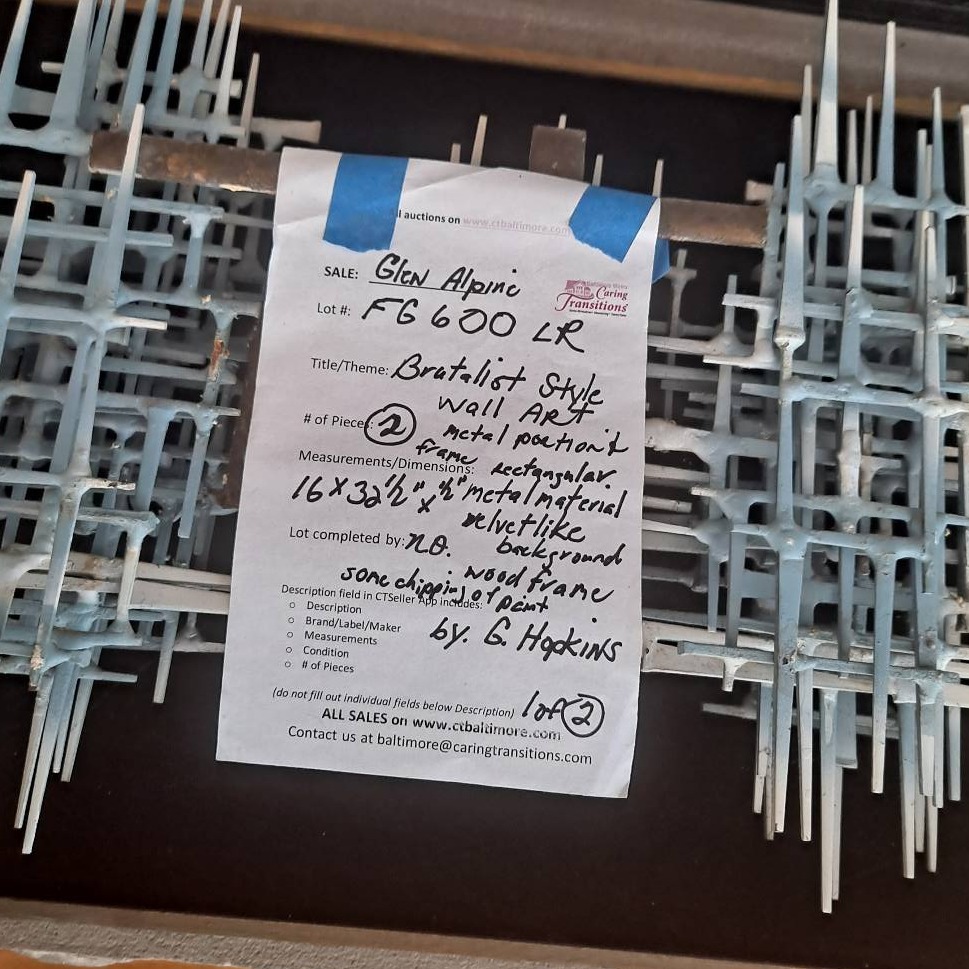 ll auctions on www.ctbaltimore.com
SALE: Glen Alpine
Caring
Transitions
Lot #: FG 600 LR
Title/Theme: Brutalist Style
Wall ART
# of Pieces: 2 metal portion &
frame rectangular.
Measurements/Dimensions:
16 x 32 1/2" x 1/2" metal material
velvetlike
Lot completed by: n.o. background
wood frame
some chipping of paint
Description field in CTSeller App includes:
○ Description
○ Brand/Label/Maker by. G. Hopkins
○ Measurements
○ Condition
○ # of Pieces
(do not fill out individual fields below Description) 1 of 2
ALL SALES on www.ctbaltimore.com
Contact us at baltimore@caringtransitions.com